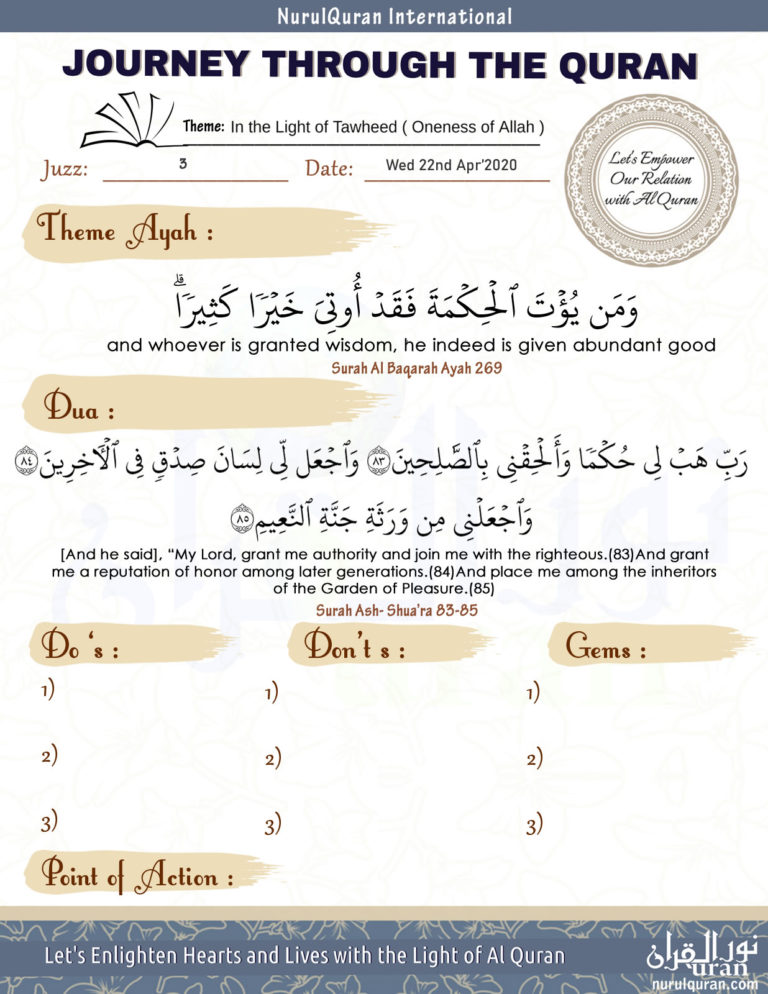 NurulQuran International
JOURNEY THROUGH THE QURAN
Theme: In the Light of Tawheed ( Oneness of Allah )
Juzz: 3 Date: Wed 22nd Apr'2020
Let's Empower
Our Relation
with Al Quran
Theme Ayah :
وَمَن يُؤْتَ ٱلْحِكْمَةَ فَقَدْ أُوتِىَ خَيْرًا كَثِيرًا ۗ
and whoever is granted wisdom, he indeed is given abundant good
Surah Al Baqarah Ayah 269
Dua :
رَبِّ هَبْ لِى حُكْمًا وَأَلْحِقْنِى بِٱلصَّٰلِحِينَ ٨٣ وَٱجْعَل لِّى لِسَانَ صِدْقٍ فِى ٱلْءَاخِرِينَ ٨٤
وَٱجْعَلْنِى مِن وَرَثَةِ جَنَّةِ ٱلنَّعِيمِ ٨٥
[And he said], “My Lord, grant me authority and join me with the righteous.(83)And grant
me a reputation of honor among later generations.(84)And place me among the inheritors
of the Garden of Pleasure.(85)
Surah Ash- Shua'ra 83-85
Do ‘s : Don't s : Gems :
1) 1) 1)
2) 2) 2)
3) 3) 3)
Point of Action :
Let's Enlighten Hearts and Lives with the Light of Al Quran
نور القران
uran
nurulquran.com